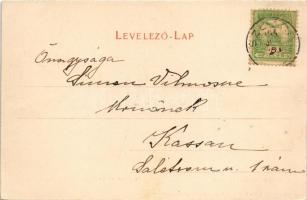 LEVELEZŐ-LAP
Őnagysága
Simon Vilmosné
Úrnőnek
Kassán
u. 1 szám